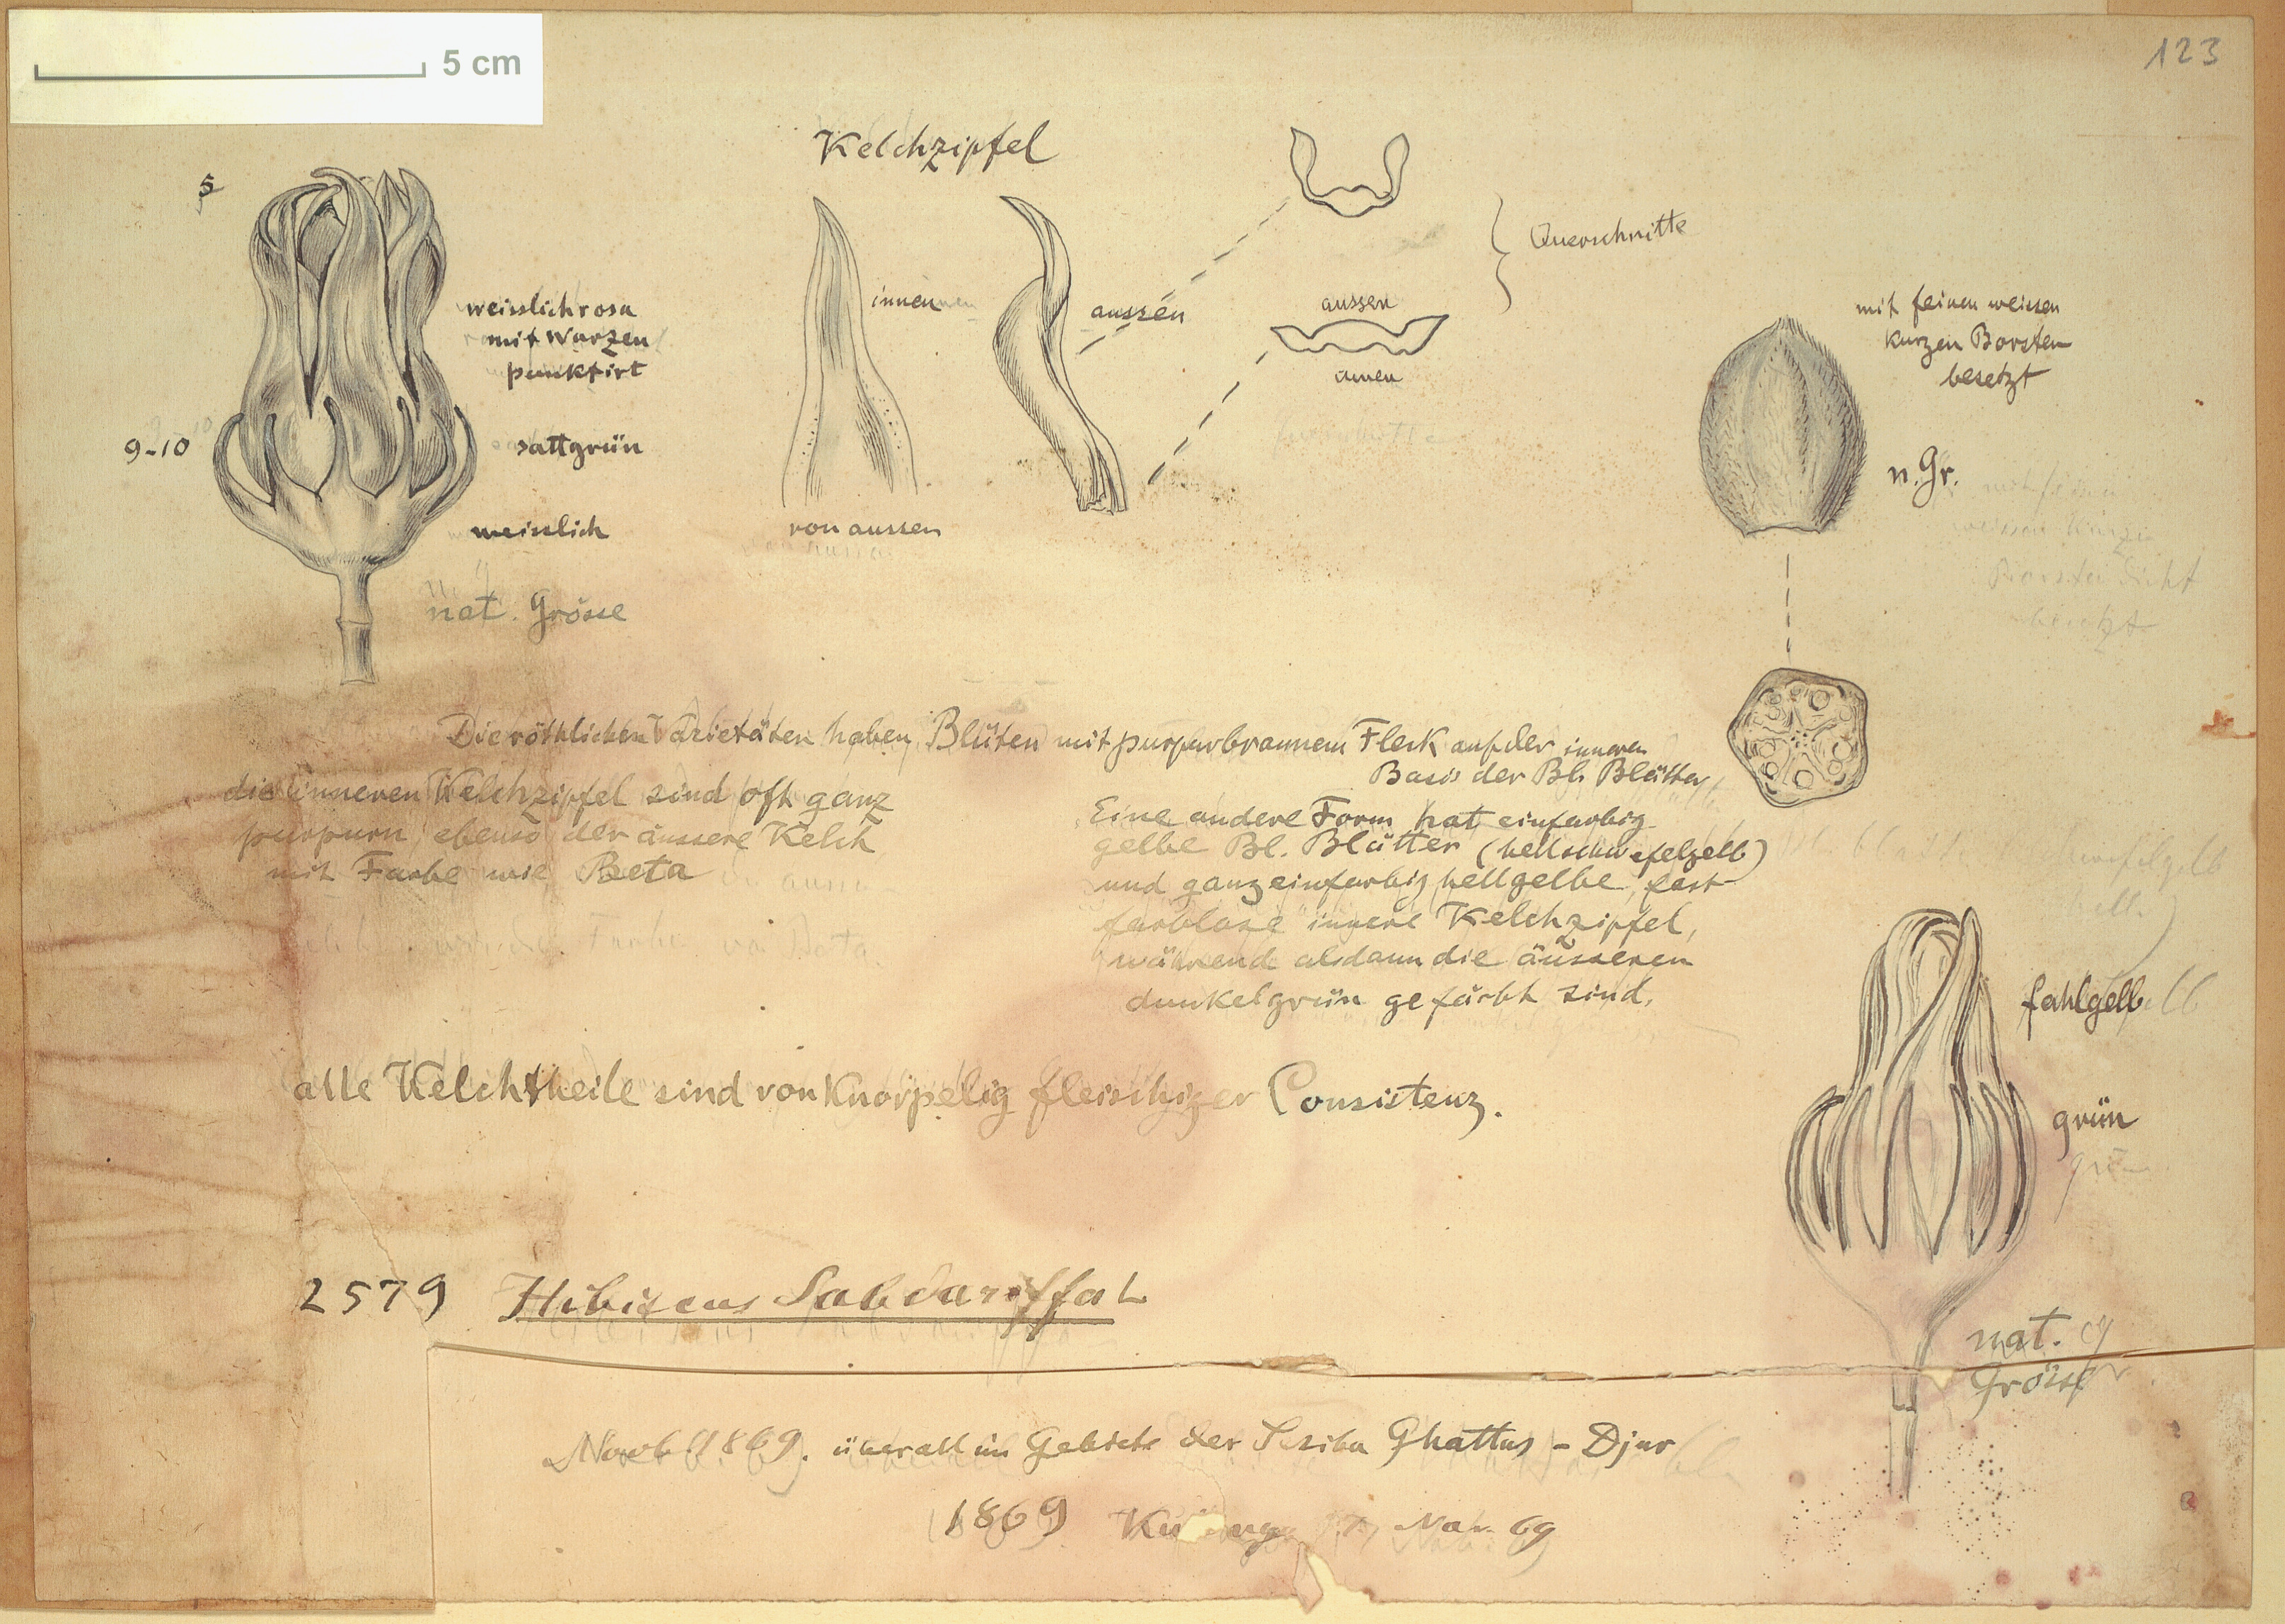 5 cm
123
Kelchzipfel
5
Querschnitte
innen
aussen
aussen
innen
weisslichrosa
mit Warzen
punktirt
9-10
sattgrün
weisslich
nat. Grösse
von aussen
mit feinen weissen
kurzen Borsten
besetzt
n. Gr.
Die röthlichen Varietäten haben Blüten mit purpurbraunem Fleck auf der inneren
Basis der Bl. Blätter
die inneren Kelchzipfel sind oft ganz
purpurn, ebenso der äussere Kelch
mit Farbe wie Beta
Eine andere Form hat einfarbig
gelbe Bl. Blätter (hellschwefelgelb)
und ganz einfarbig hellgelbe, fast
farblose innere Kelchzipfel,
während alsdann die äusseren
dunkelgrün gefärbt sind.
fahlgelb
grün
alle Kelchtheile sind von knorpelig fleischiger Consistenz.
2579 Hibiscus Sabdariffa L
nat.
Grösse
Novb 1869. überall im Gebiete der Seriba Ghattas - Djur
1869 Nov. 69